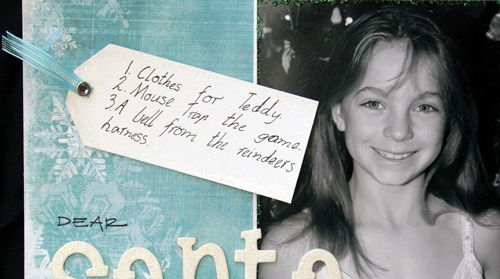 1. Clothes for Teddy.
2. Mouse trap the game.
3. A bell from the reindeers
harness.
DEAR
santa